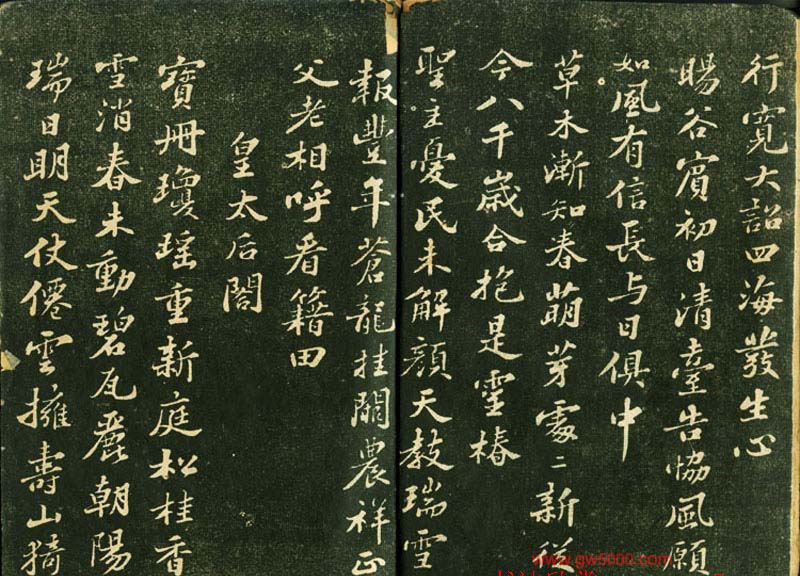 行寬大詔四海發生心
暘谷賓初日清臺告協風願
如風有信長与日俱中
草木漸知春萌芽處〻新從
今八千歲合抱是靈椿
聖主憂民未解顏天教瑞雪
報豐年蒼龍挂闕農祥正
父老相呼看籍田
皇太后閣
寶冊瓊瑤重新庭松桂香
雪消春未動碧瓦麗朝陽
瑞日明天仗僊雲擁壽山猗
www.gw5000.com